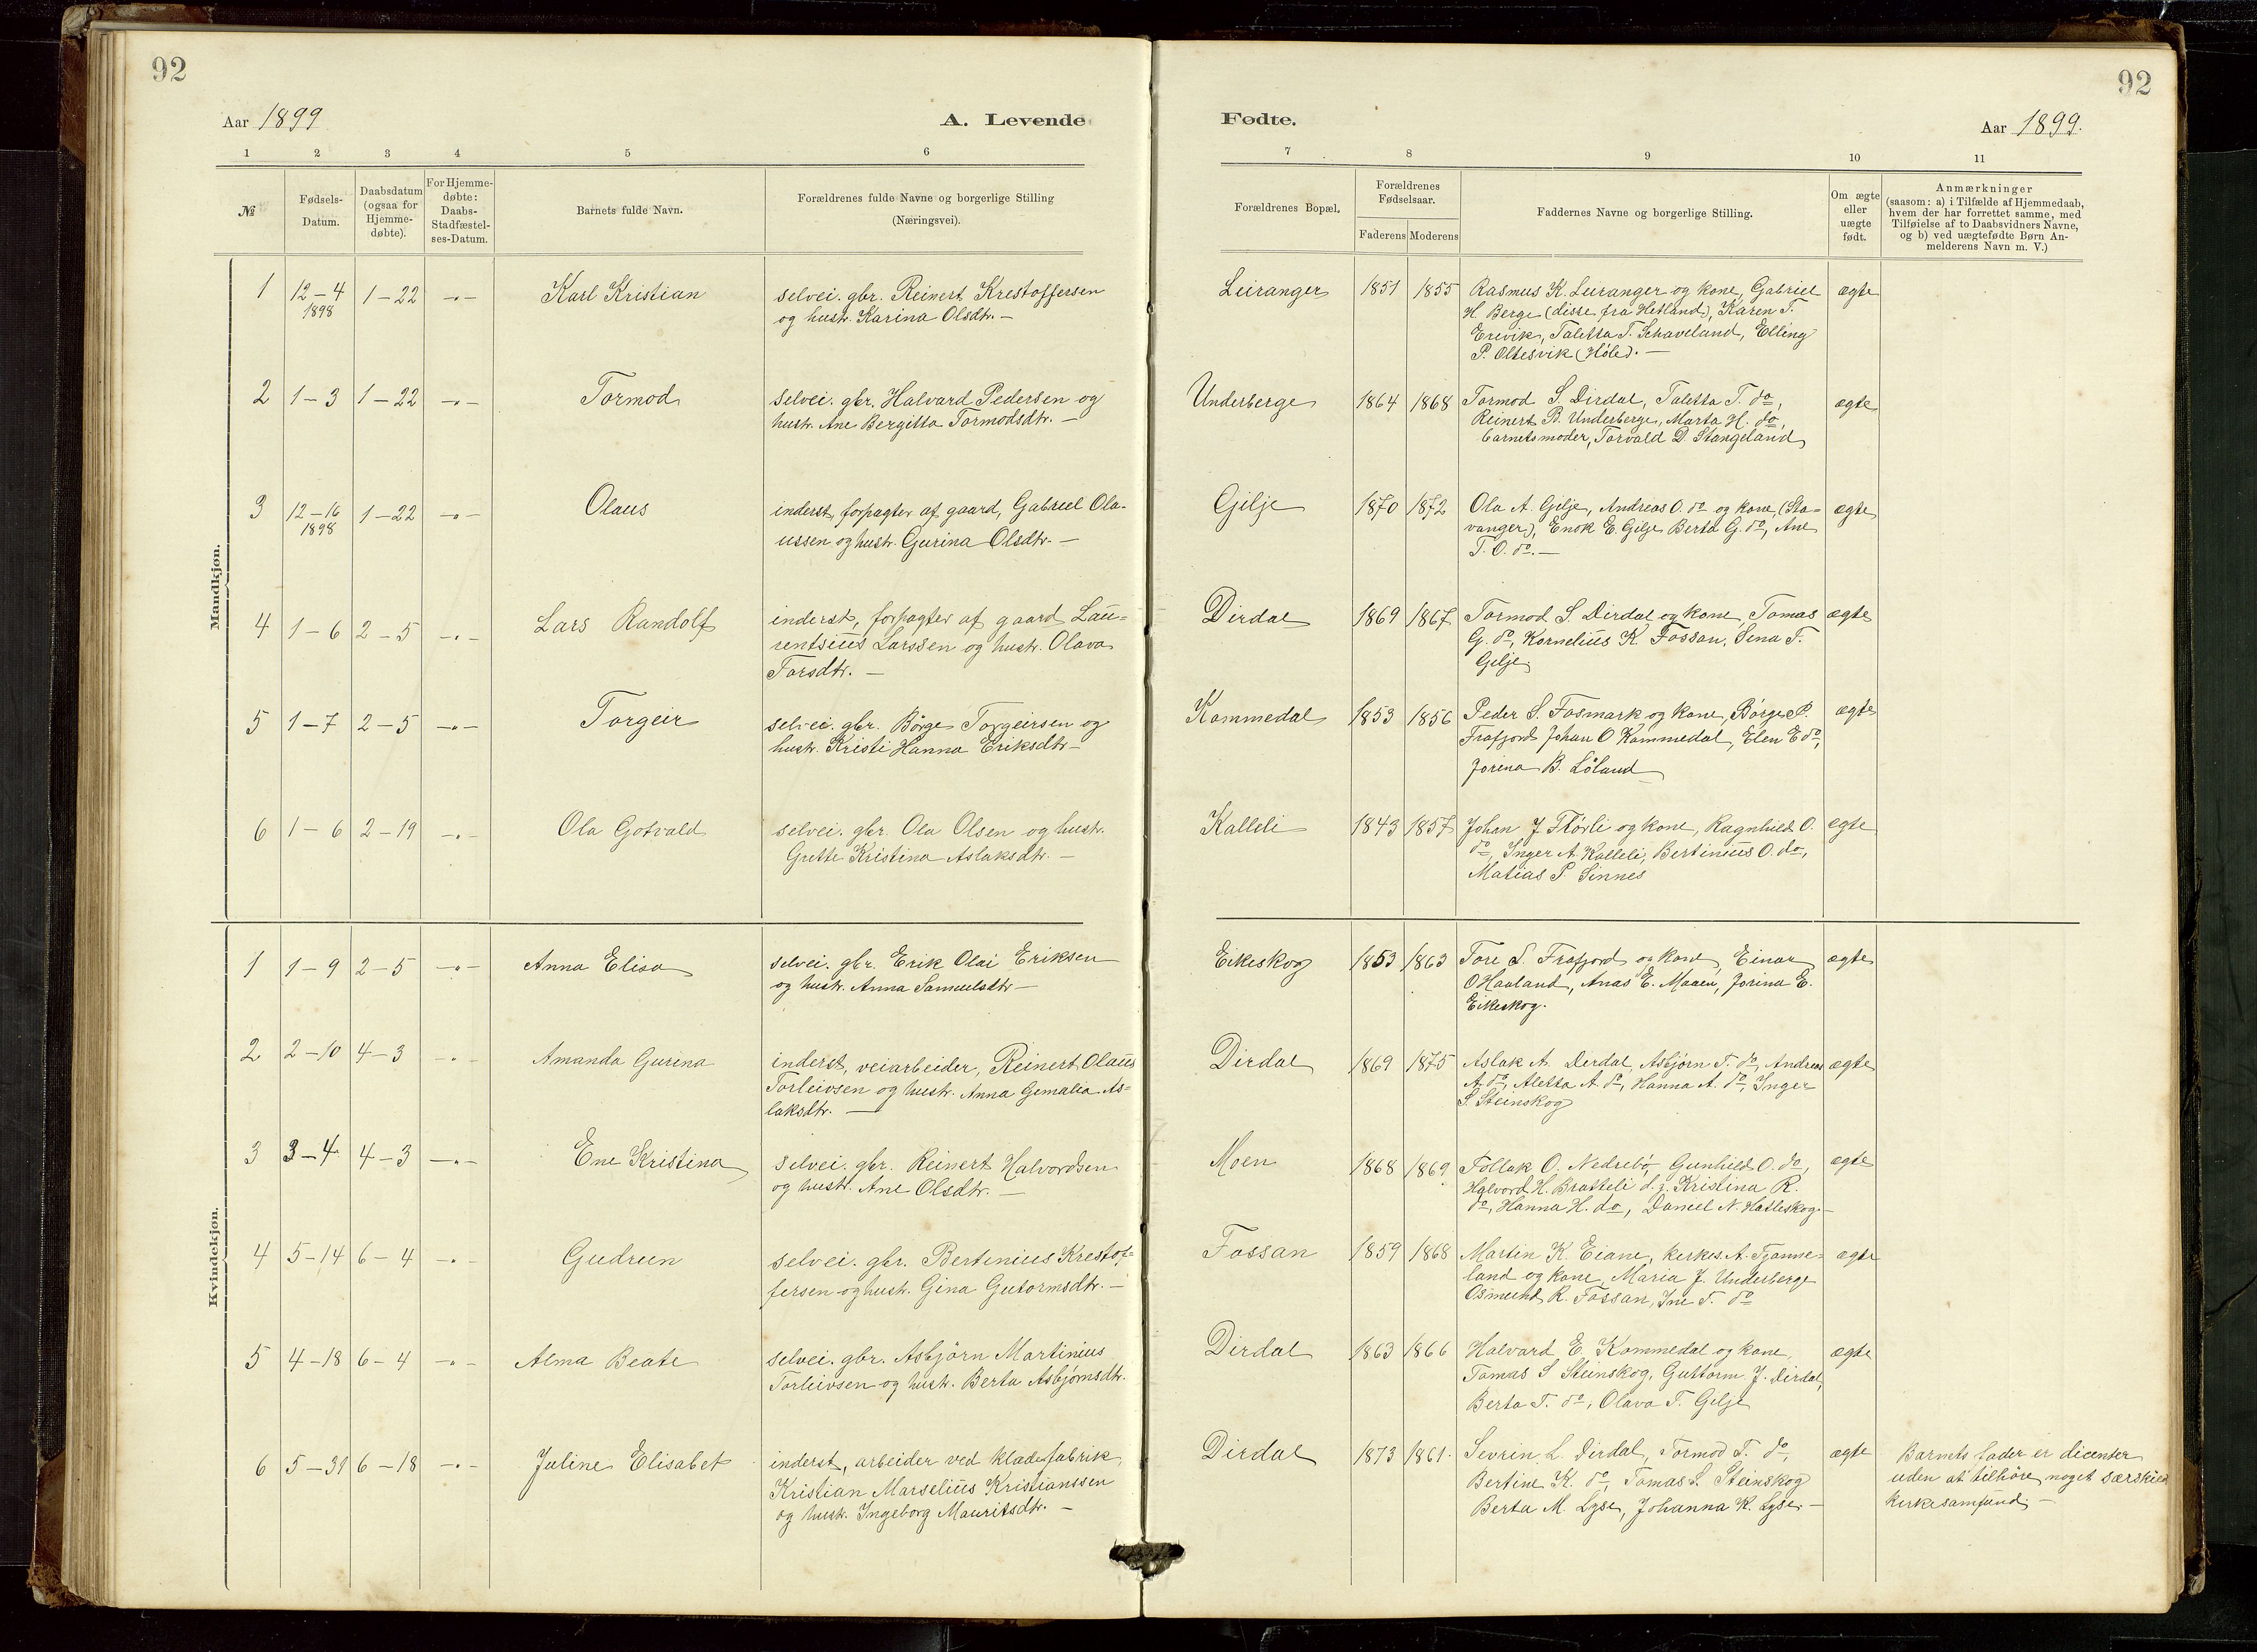 92
92
Aar 1899
A. Levende
Fødte.
Aar 1899.
1 2 3 4 5 6
7 8 9 10 11
№
Fødsels-
Datum.
Daabsdatum
(ogsaa for
Hjemme-
døbte).
For Hjemme-
døbte:
Daabs-
Stadfæstel-
ses-Datum.
Barnets fulde Navn.
Forældrenes fulde Navne og borgerlige Stilling
(Næringsvei).
Forældrenes Bopæl.
Forældrenes
Fødselsaar.
Faderens Moderens
Faddernes Navne og borgerlige Stilling.
Om ægte
eller
uægte
født.
Anmærkninger
(saasom: a) i Tilfælde af Hjemmedaab,
hvem der har forrettet samme, med
Tilføielse af to Daabsvidners Navne,
og b) ved uægtefødte Børn An-
melderens Navn m. V.)
Mandkjøn.
1 12-4 1-22 -"- Karl Kristian selvei. gbr. Reinert Krestoffersen
1898 og hustr. Karina Olsdtr. -
Leiranger 1851 1855 Rasmus K. Leiranger og kone, Gabriel ægte
H. Berge (disse fra Hetland), Karen T.
Erevik, Taletta T. Schaveland, Elling
P. Oltesvik (Høle). -
2 1-3 1-22 -"- Tormod selvei. gbr. Halvard Pedersen og
hustr. Ane Bergitta Tormodsdtr. -
Underberge 1864 1868 Tormod S. Dirdal, Taletta T. do, ægte
Reinert B. Underberge, Marta H. do,
barnets moder, Torvald D. Stangeland
3 12-16 1-22 -"- Olaus inderst, forpagter af gaard, Gabriel Ola-
1898 ussen og hustr. Gurina Olsdtr. -
Gilje 1870 1872 Ola A. Gilje, Andreas O. do og kone, (Sta- ægte
vanger), Enok E. Gilje Berta G. do, Ane
T. O. do. -
4 1-6 2-5 -"- Lars Randolf inderst, forpagter af gaard Lau-
rentsius Larssen og hustr. Olava
Torsdtr. -
Dirdal 1869 1867 Tormod S. Dirdal og kone, Tomas ægte
G. do, Kornelius K. Fossan, Sena T.
Gilje
5 1-7 2-5 -"- Torgeir selvei. gbr. Børge Torgeirsen og
hustr. Kristi Hanna Eriksdtr. -
Kommedal 1853 1856 Peder S. Fosmark og kone, Børge P. ægte
Frafjord Johan O Kommedal, Elen E do,
Jorina B. Løland
6 1-6 2-19 -"- Ola Gotvald selvei. gbr. Ola Olsen og hustr.
Grette Kristina Aslaksdtr. -
Kalleli 1843 1857 Johan J. Flørli og kone, Ragnhild O. egte
do, Inger A. Kalleli, Bertinius O. do,
Matias P. Sinnes
Kvindekjøn.
1 1-9 2-5 -"- Anna Elisa selvei. gbr. Erik Olai Eriksen
og hustr. Anna Samuelsdtr -
Eikeskog 1853 1863 Tore S. Frafjord og kone, Einar ægte
O Haaland, Anas E. Maaen, Jorina E.
Eikeskog.
2 2-10 4-3 -"- Amanda Gurina inderst, veiarbeider, Reinert Olaus
Torleivsen og hustr. Anna Gemalia As-
laksdtr. -
Dirdal 1869 1875 Aslak A. Dirdal, Asbjørn T. do, Andreas ægte
A. do, Aletta A. do, Hanna A. do, Inger
S. Steinskog
3 3-4 4-3 -"- Ene Kristina selvei. gbr. Reinert Halvordsen
og hustr. Ane Olsdtr. -
Moen 1868 1869 Tollak O. Nedrebø, Gunhild O. do, ægte
Halvord H. Bratteli d. y. Kristina R.
do, Hanna H. do, Daniel N. Hatleskog -
4 5-14 6-4 -"- Gudrun selvei. gbr. Bertinius Krestof-
fersen og hustr. Gina Gutormsdtr. -
Fossan 1859 1868 Martin K. Eiane, kirkes. A. Tjønne- ægte
land og kone, Maria J. Underberge
Osmund R. Fossan, Ine T. do
5 4-18 6-4 -"- Alma Beate selvei. gbr. Asbjørn Martinius
Torleivsen og hustr. Berta Asbjørnsdtr.
Dirdal 1863 1866 Halvard E. Kommedal og kone, ægte
Tomas S Steinskog, Guttorm J. Dirdal,
Berta T. do, Olava T. Gilje
6 5-31 6-18 -"- Juline Elisabet inderst, arbeider ved klædefabrik,
Kristian Marselius Kristianssen
og hustr. Ingeborg Mauritsdtr. -
Dirdal 1873 1861. Sevrin L. Dirdal, Tormod T. do, ægte Barnets fader er dicenter
Bertine K. do, Tomas S. Steinskog uden at tilhøre noget særskild
Berta M. Lyse, Johanna K. Lyse. - kirkesamfund -